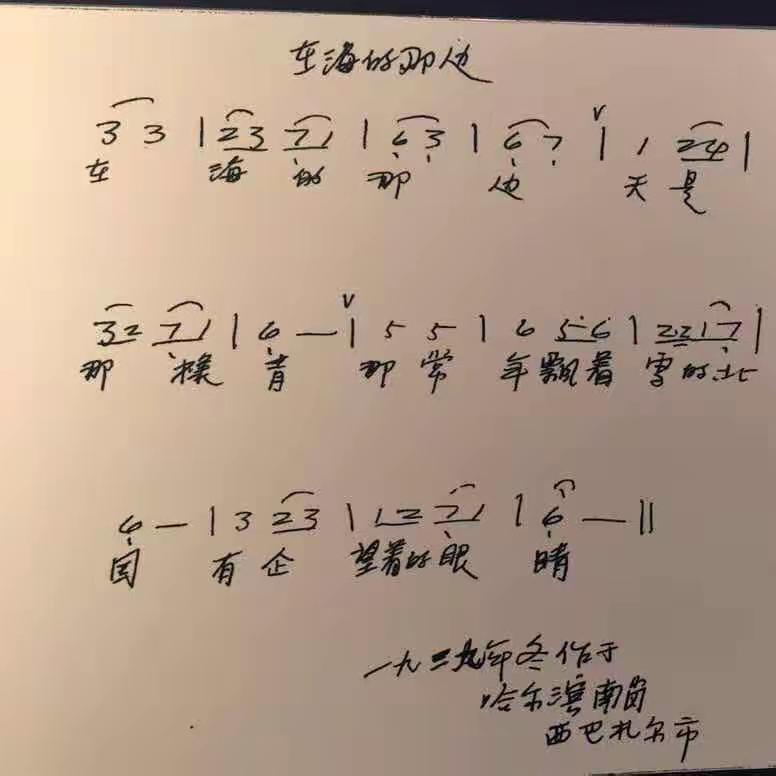 在海的那边
3 3 | 23 71 | 6 3 | 6 7 V | 1 24 |
在 海 的 那 边 天 是
32 71 | 6 — V | 5 5 | 6 5·6 | 2217 |
那 样 青 那 常 年 飘着 雪的北
6 — | 3 23 | 12 71 | 6 — ||
国 有 企 望着的眼 睛
一九三九年冬作于
哈尔滨南岗
西巴扎尔市